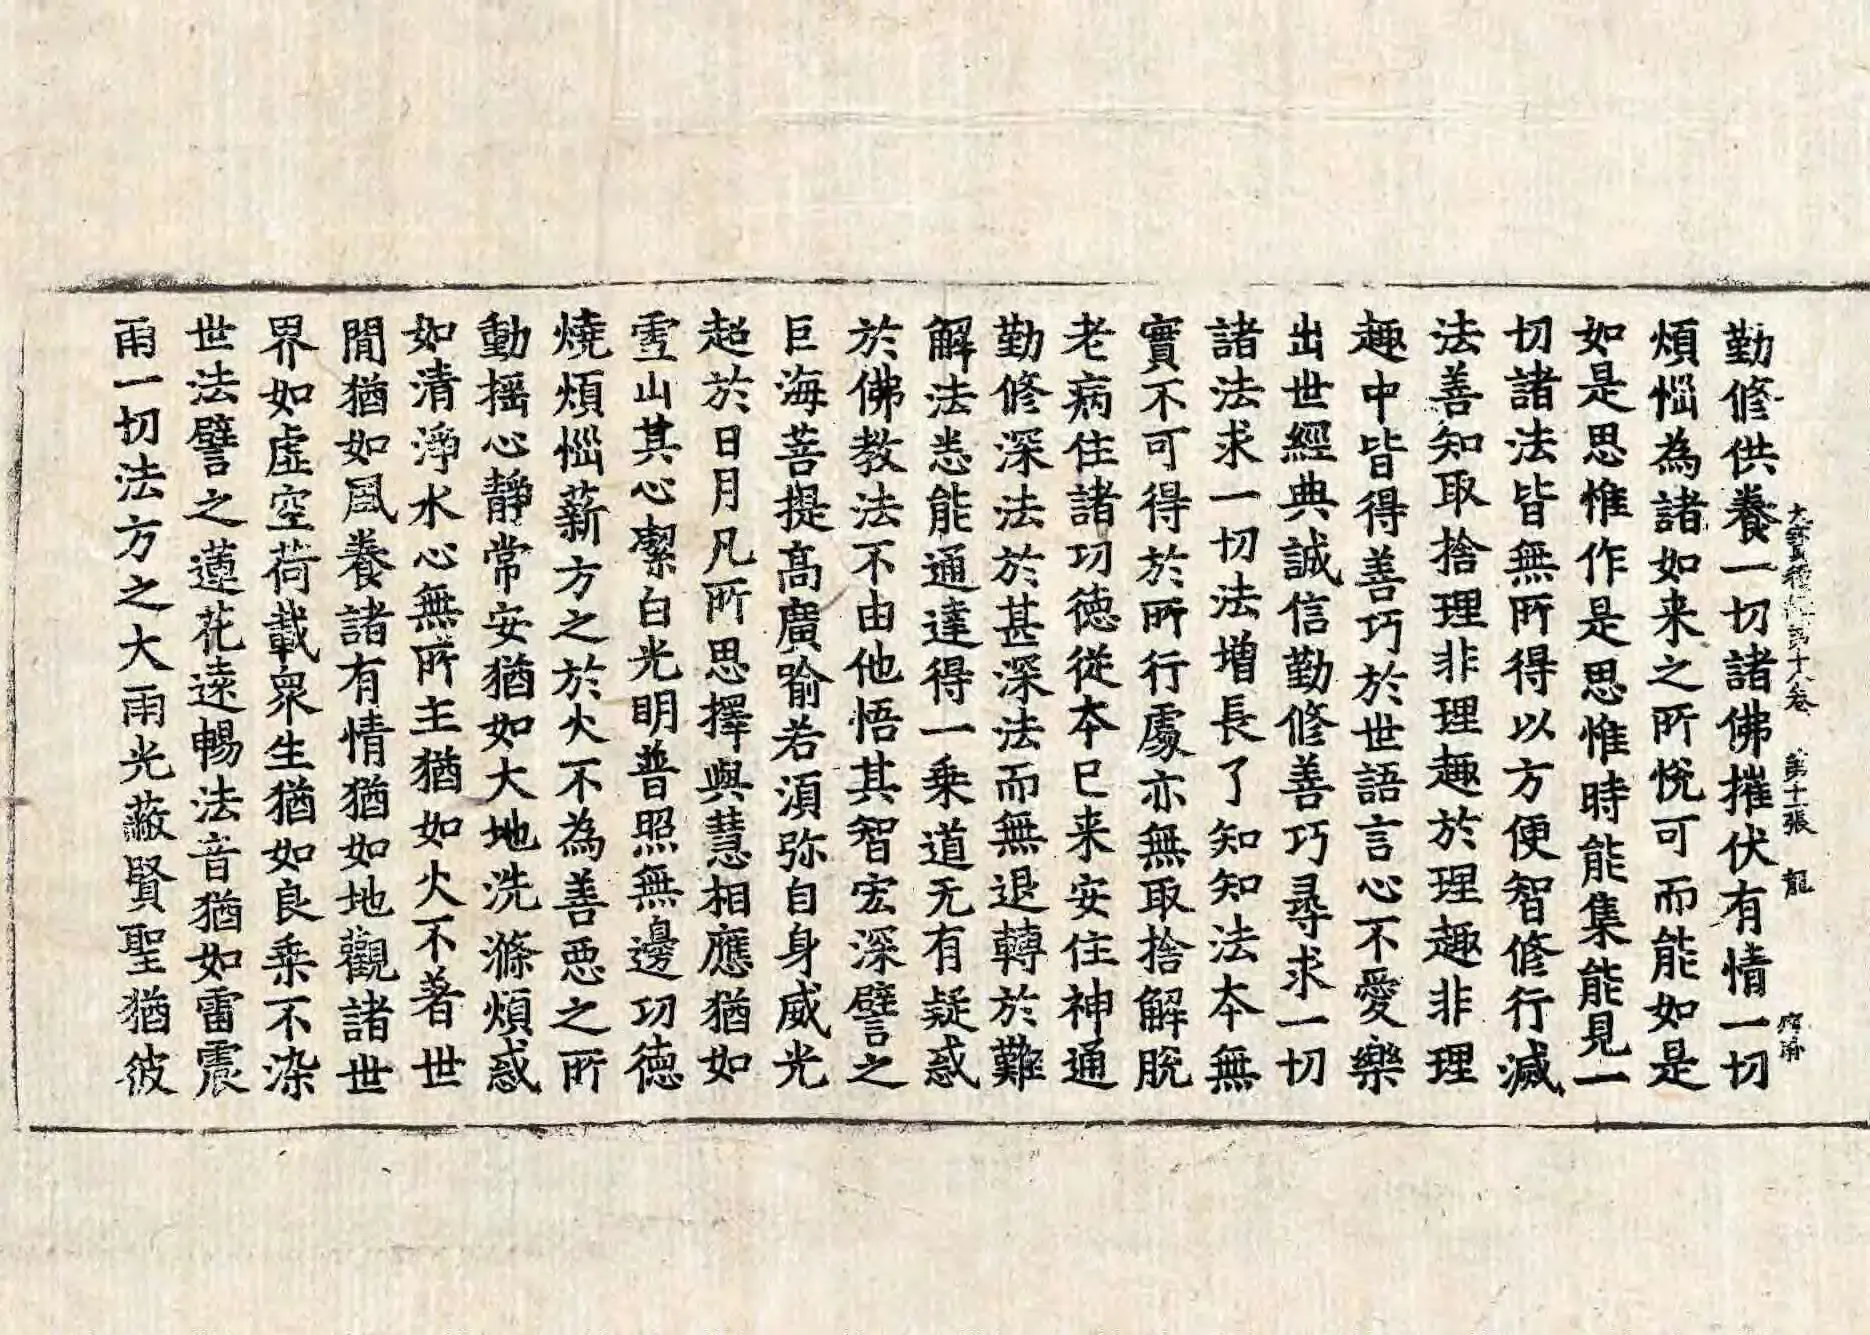 勤修供養一切諸佛摧伏有情一切
煩惱為諸如来之所悅可而能如是
如是思惟作是思惟時能集能見一
切諸法皆無所得以方便智修行滅
法善知取捨理非理趣於理趣非理
趣中皆得善巧於世語言心不愛樂
出世經典誠信勤修善巧尋求一切
諸法求一切法增長了知知法本無
實不可得於所行處亦無取捨解脫
老病住諸功德從本已来安住神通
勤修深法於甚深法而無退轉於難
解法悉能通達得一乗道无有疑惑
於佛教法不由他悟其智宏深譬之
巨海菩提高廣喻若湏弥自身威光
超於日月凡所思擇與慧相應猶如
雪山其心潔白光明普照無邊功德
燒煩惱薪方之於火不為善惡之所
動揺心靜常安猶如大地洗滌煩惑
如清淨水心無所主猶如火不著世
間猶如風養諸有情猶如地觀諸世
界如虛空荷載衆生猶如良乗不染
世法譬之蓮花遠暢法音猶如雷震
雨一切法方之大雨光蔽賢聖猶彼
大寶積經第十八卷 第十一張 龍